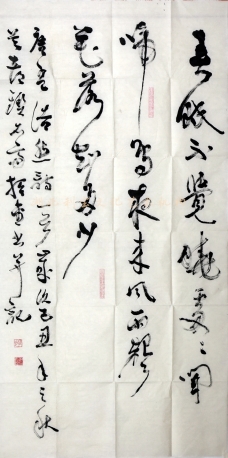 春眠不覺曉處々聞
啼鳥夜来風雨聲
花落知多少
唐孟浩然詩一首歲次己丑年之秋